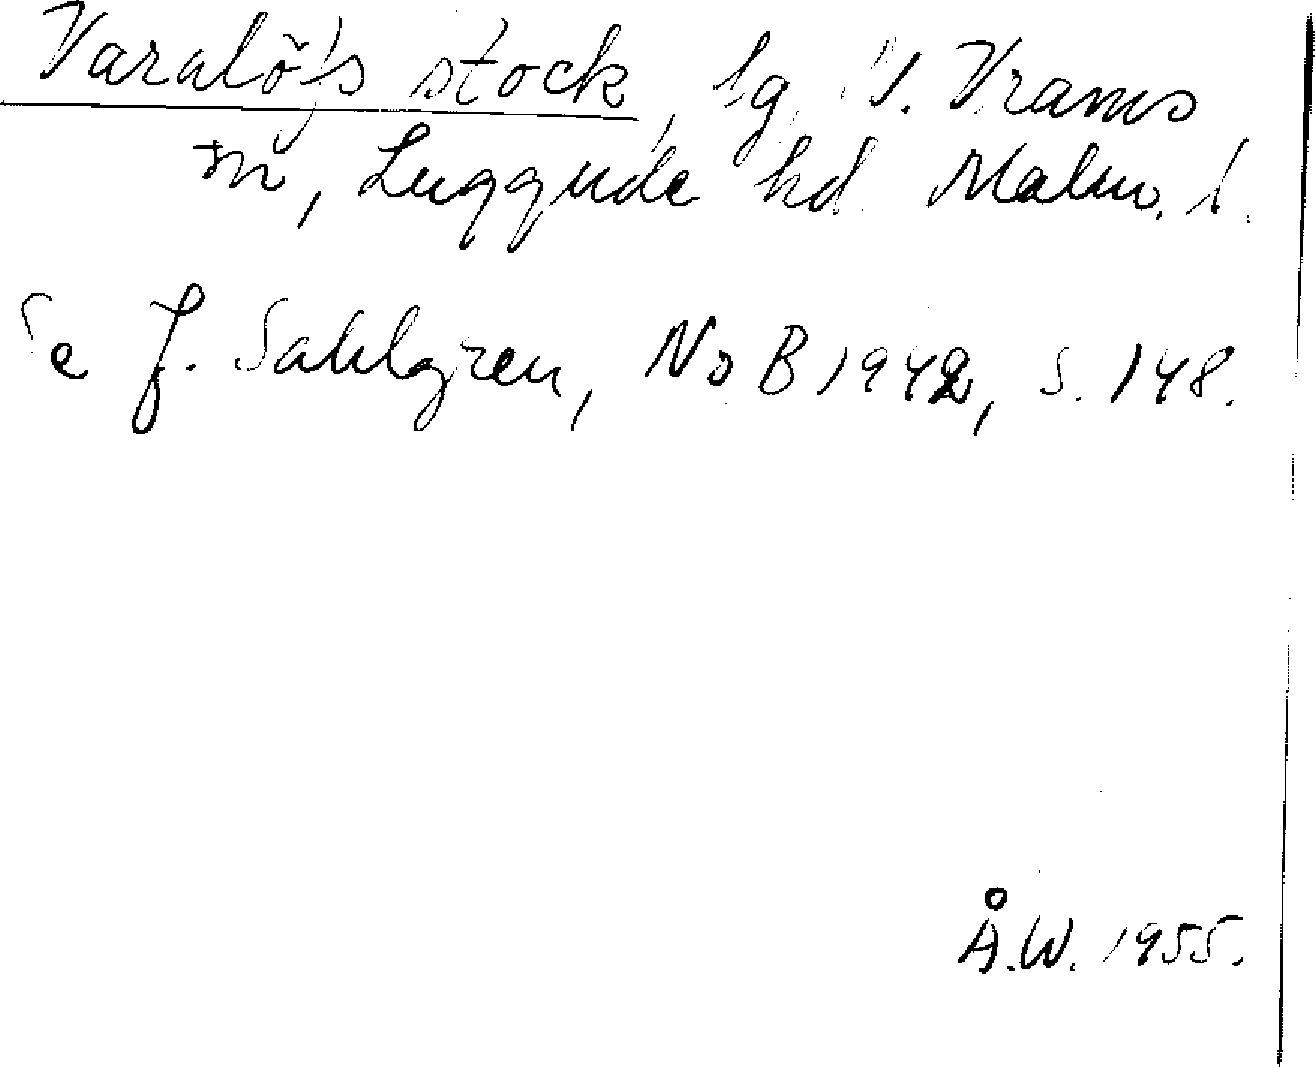 Varalö's stock, lg, V. Vrams
sn, Luggude hd. Malm. l.
Se J. Sahlgren, NoB 1942, s. 148.
Å.W. 1955.